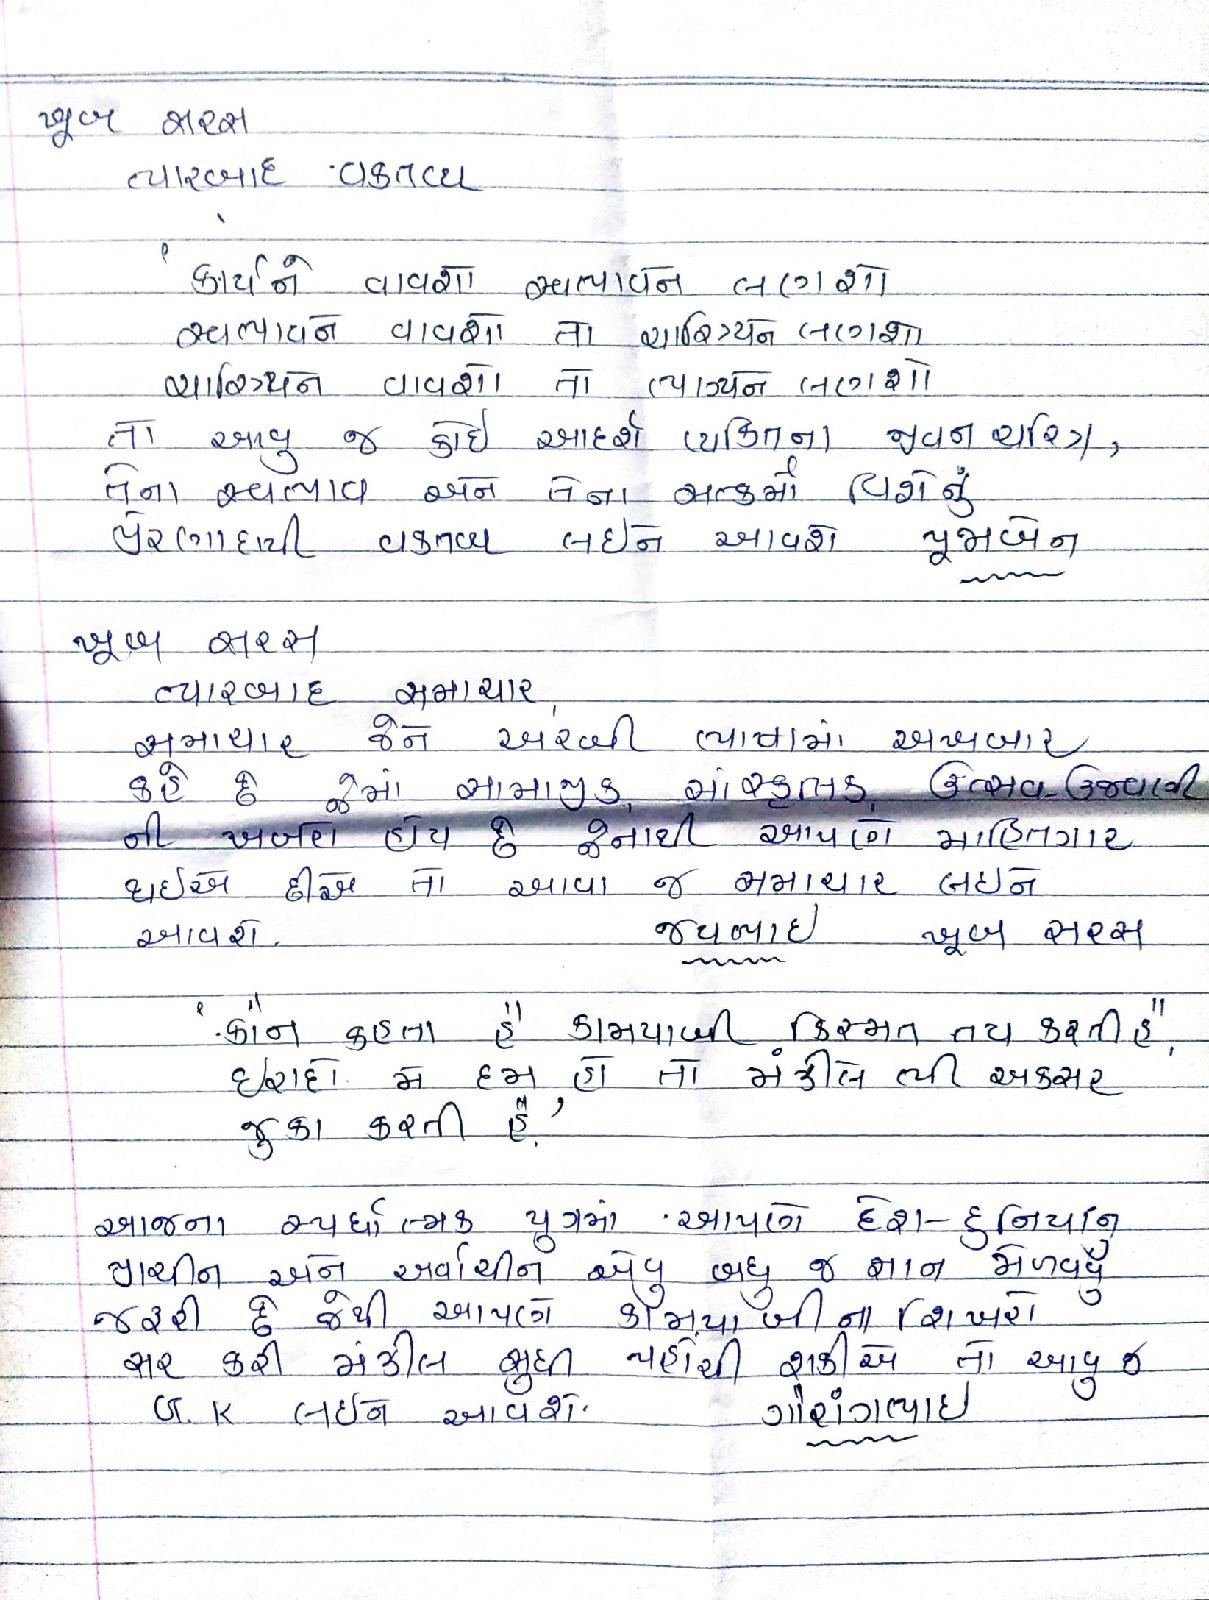 ખૂબ સરસ
ત્યારબાદ વકતવ્ય
' કાર્યને વાવશો સ્વભાવને લણશો
સ્વભાવને વાવશો તો ચારિત્ર્યને લણશો
ચારિત્ર્યને વાવશો તો ભાગ્યને લણશો
તો આવુ જ કોઇ આદર્શ વ્યકિતના જીવન ચરિત્ર,
તેના સ્વભાવ અને તેના સત્કર્મો વિશેનું
પ્રેરણાદાયી વકતવ્ય લઇને આવશે પૂજાબેન
ખૂબ સરસ
ત્યારબાદ સમાચાર,
સમાચાર જેને અરબી ભાષામાં અખબાર
કહે છે જેમાં સામાજીક, સાંસ્કૃતક, ઉત્સવ-ઉજવણી
ની ખબરો હોય છે જેનાથી આપણે માહિતગાર
થઇએ છીએ તો આવા જ સમાચાર લઇને
આવશે. જયભાઇ ખૂબ સરસ
' "કૌન કહતા હૈ" કામયાબી કિસ્મત તય કરતી હૈ",
ઇરાદો મે દમ હો તો મંઝીલે ભી અકસર
જુકા કરતી હૈ.'
આજના સ્પર્ધાત્મક યુગમાં આપણે દેશ-દુનિયાનુ
પ્રાચીન અને અર્વાચીન એવુ બધુ જ જ્ઞાન મેળવવુ
જરૂરી છે જેથી આપણે કામયાબીના શિખરો
સર કરી મંઝીલ સુધી પહોંચી શકીએ તો આવુ જ
G.K લઇને આવશે. ગૌરાંગભાઇ